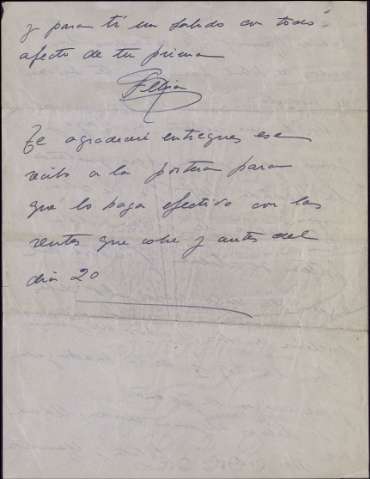 y para ti un saludo con todo
afecto de tu prima
Te agradeceré entregues ese
recibo a la portera para
que lo haga efectivo con las
rentas que cobre y antes del
día 20